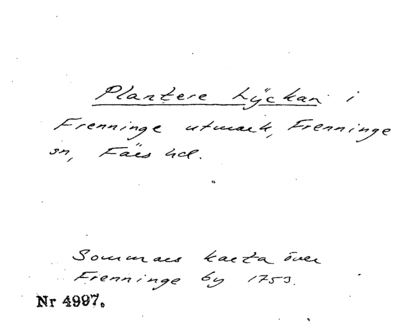 Plantere Lÿckan i
Frenninge utmark, Frenninge
sn, Färs hd.
Sommars karta över
Frenninge by 1753.
Nr 4997.